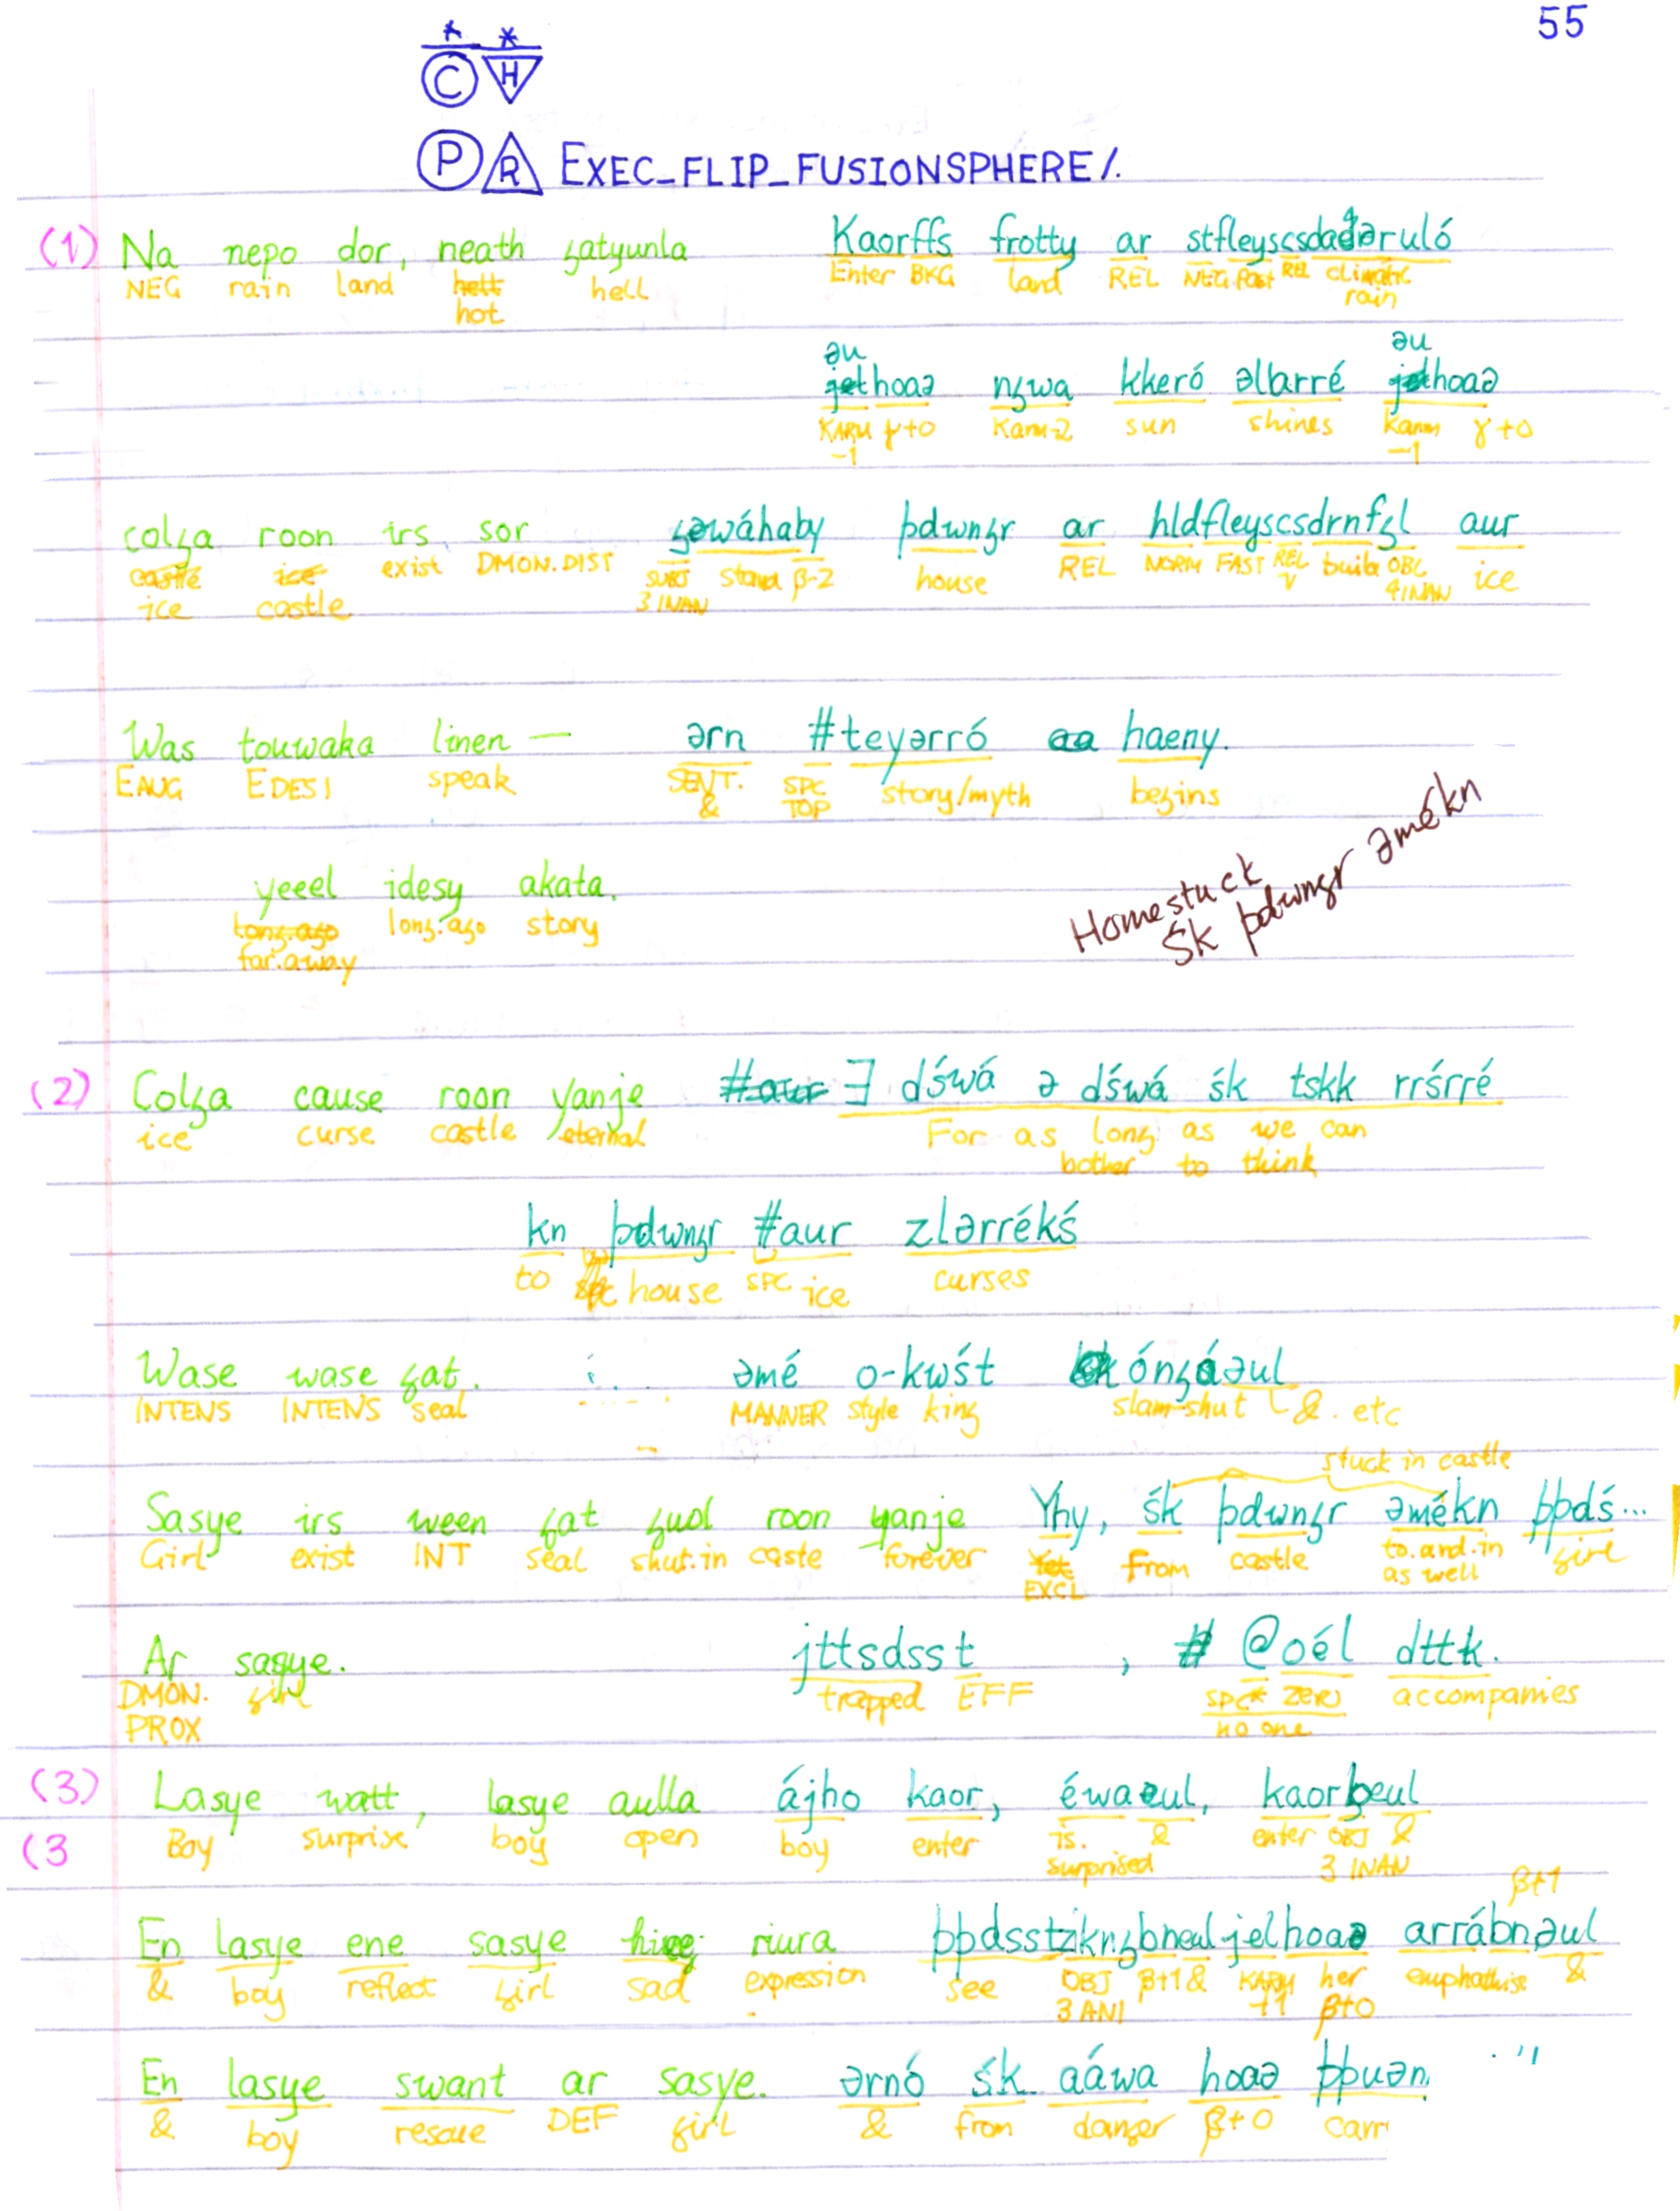 55
C H
P R EXEC_FLIP_FUSIONSPHERE/.
(1) Na nepo dor, neath ʒatyunla Kaorffs frotty ar
NEG rain land hell Enter BKG land REL NEG.Past REL climatic
hot rain
əu əu
hoaə nʒwa kkeró əlarré hoaə
KARU γ+0 Karu-2 sun shines Karu γ+0
-1 -1
colʒa roon irs sor ʒəwáhaby þdwnʒr ar hldfleyscsdrnfʒl aur
castle ice exist DMON.DIST SUBJ stand β-2 house REL NORM PAST REL build OBL ice
ice castle 3 INAN V 4INAN
Was touwaka linen — ərn #teyərró haeny.
EAUG EDESI speak SENT. SPC story/myth begins
& TOP
yeeel idesy akata.
long.ago long.ago story
far.away
Homestuck
śk þdwnʒr əmékn
(2) Colʒa cause roon yanje #aur ∃ dśwá ə dśwá śk tskk rrśrré
ice curse castle eternal For as long as we can
bother to think
kn þdwnʒr #aur zlərrékś
to house SPC ice curses
Wase wase ʒat. əmé o-kwśt ónʒáəul
INTENS INTENS seal MANNER style king slam-shut &.etc
stuck in castle
Sasye irs ween ʒat ʒuol roon yanje Yhy, śk þdwnʒr əmékn þþdś...
Girl exist INT seal shut.in caste forever EXCL from castle to.and.in girl
as well
Ar sasye. jttsdsst , @oél dttk.
DMON. girl trapped EFF SPC* zero accompanies
PROX no one
(3) Lasye watt, lasye aulla ájho kaor, éwaeul, kaorbeul
(3 Boy surprise boy open boy enter is. & enter OBJ &
surprised 3 INAN
β+1
En lasye ene sasye riura þþdsstziknʒbneuljelhoaə arrábnəul
& boy reflect girl sad expression see OBJ β+1 & KARU her emphathise &
3 ANI +1 β+0
En lasye swant ar sasye. ərnó śk aáwa hoaə þþuən
& boy rescue DEF girl & from danger β+0 carr